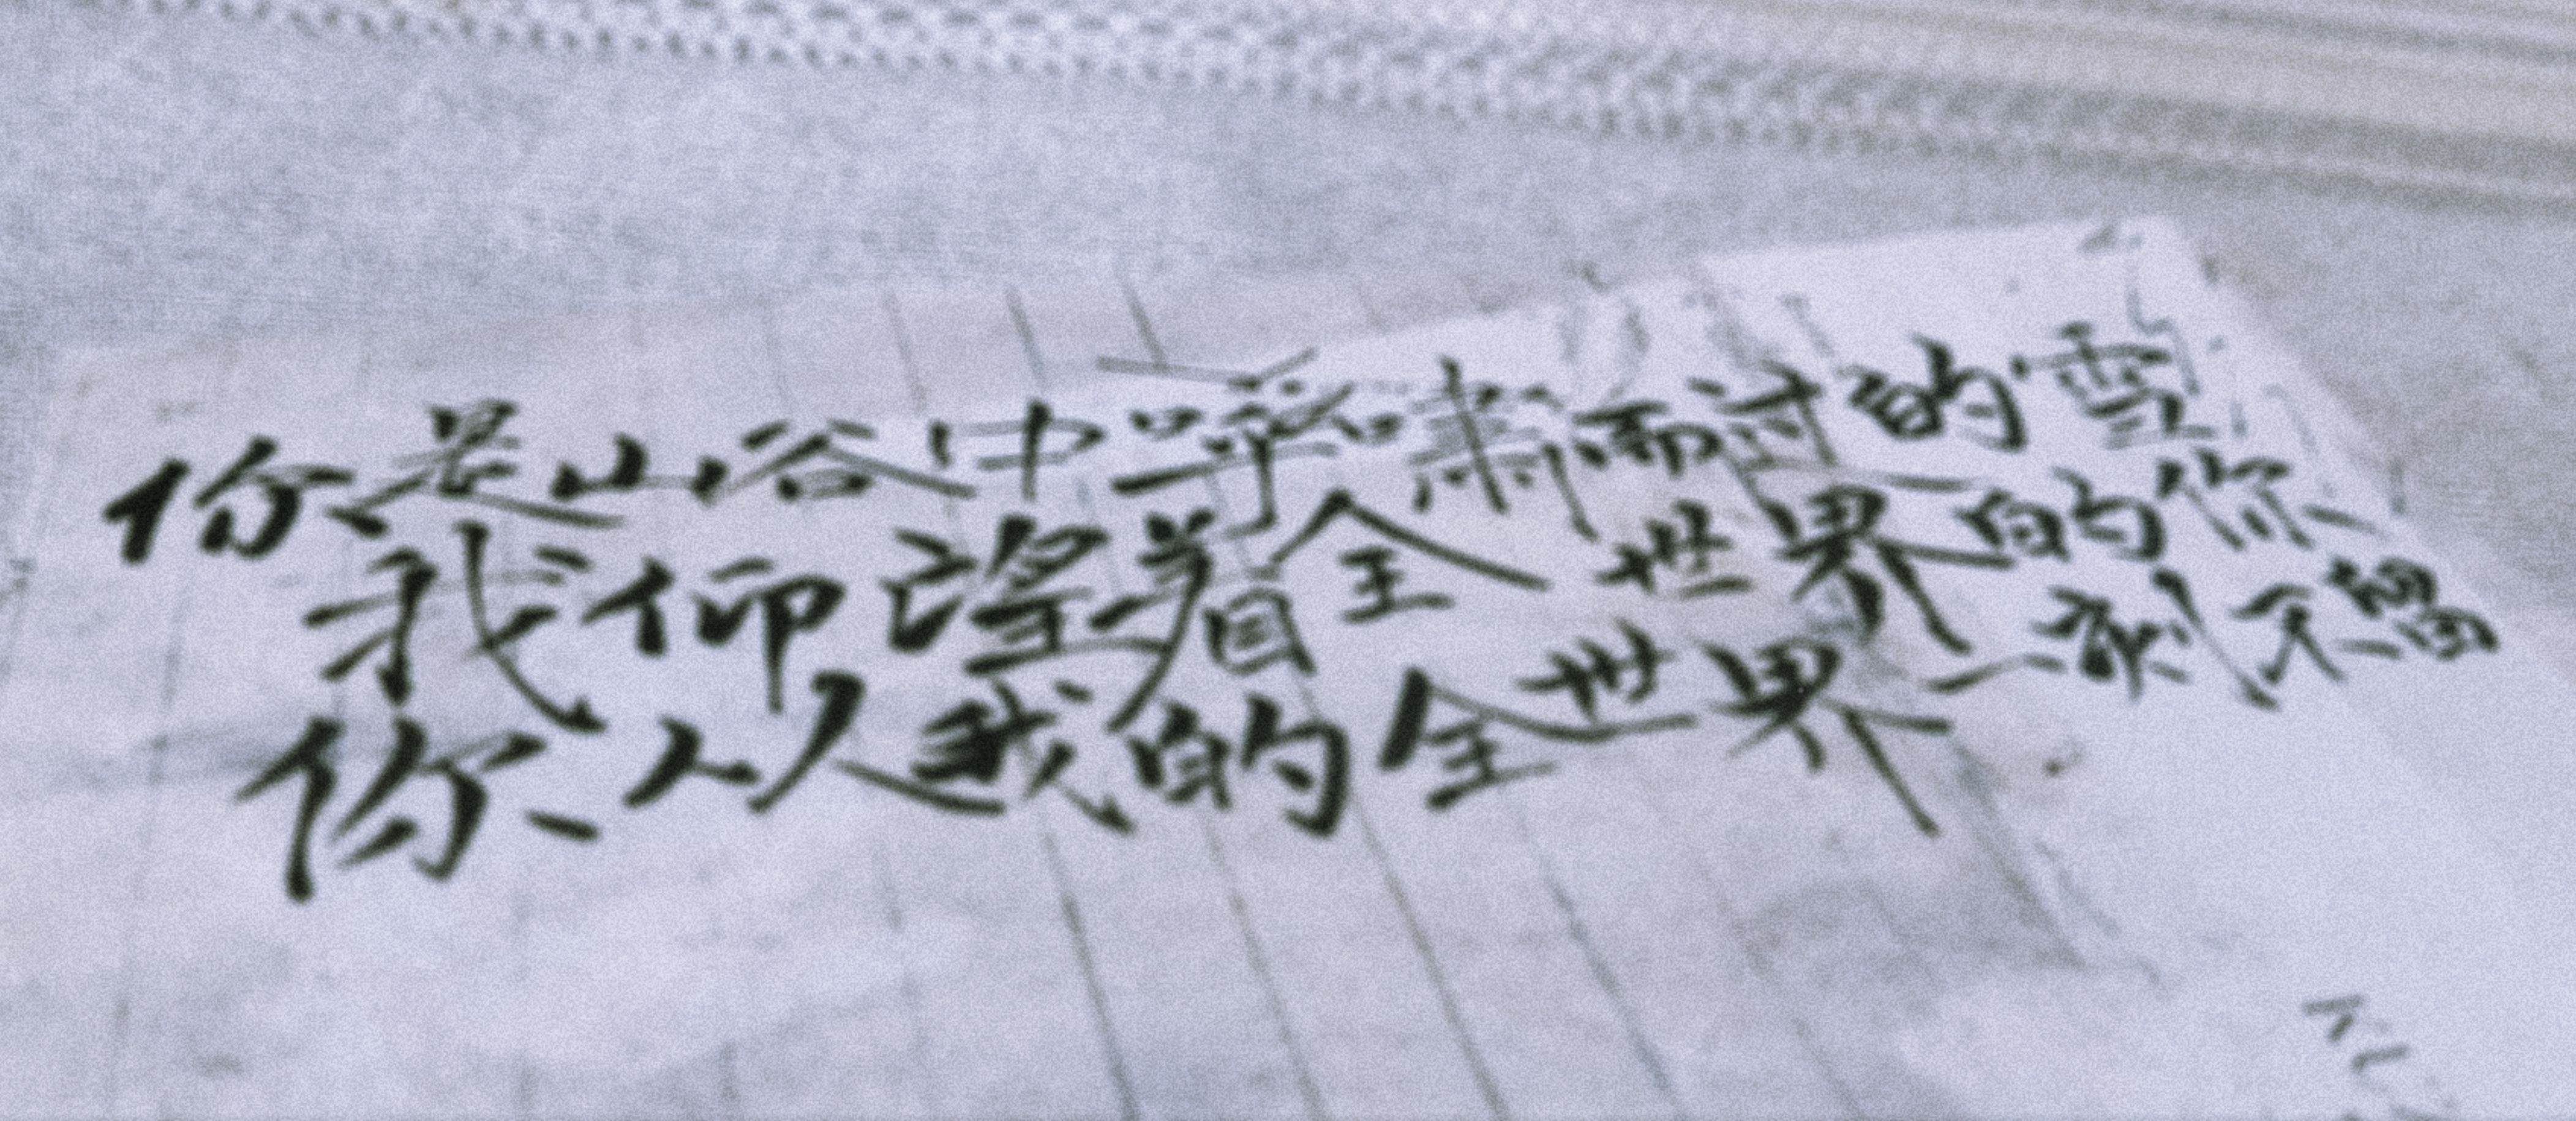 你是山谷中呼啸而过的雪
我仰望着全世界的你
你以我的全世界一我不曷